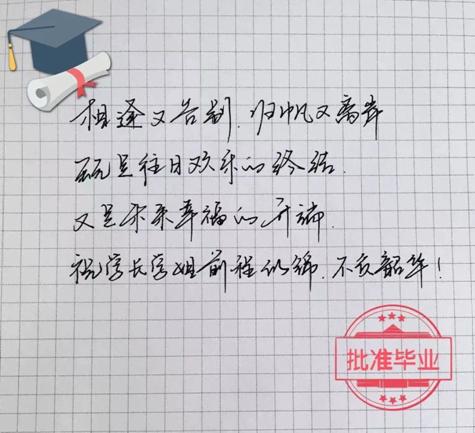 相逢又告别，归帆又离岸
既是往日欢乐的终结，
又是未来幸福的开端，
祝学长学姐前程似锦，不负韶华！
批准毕业